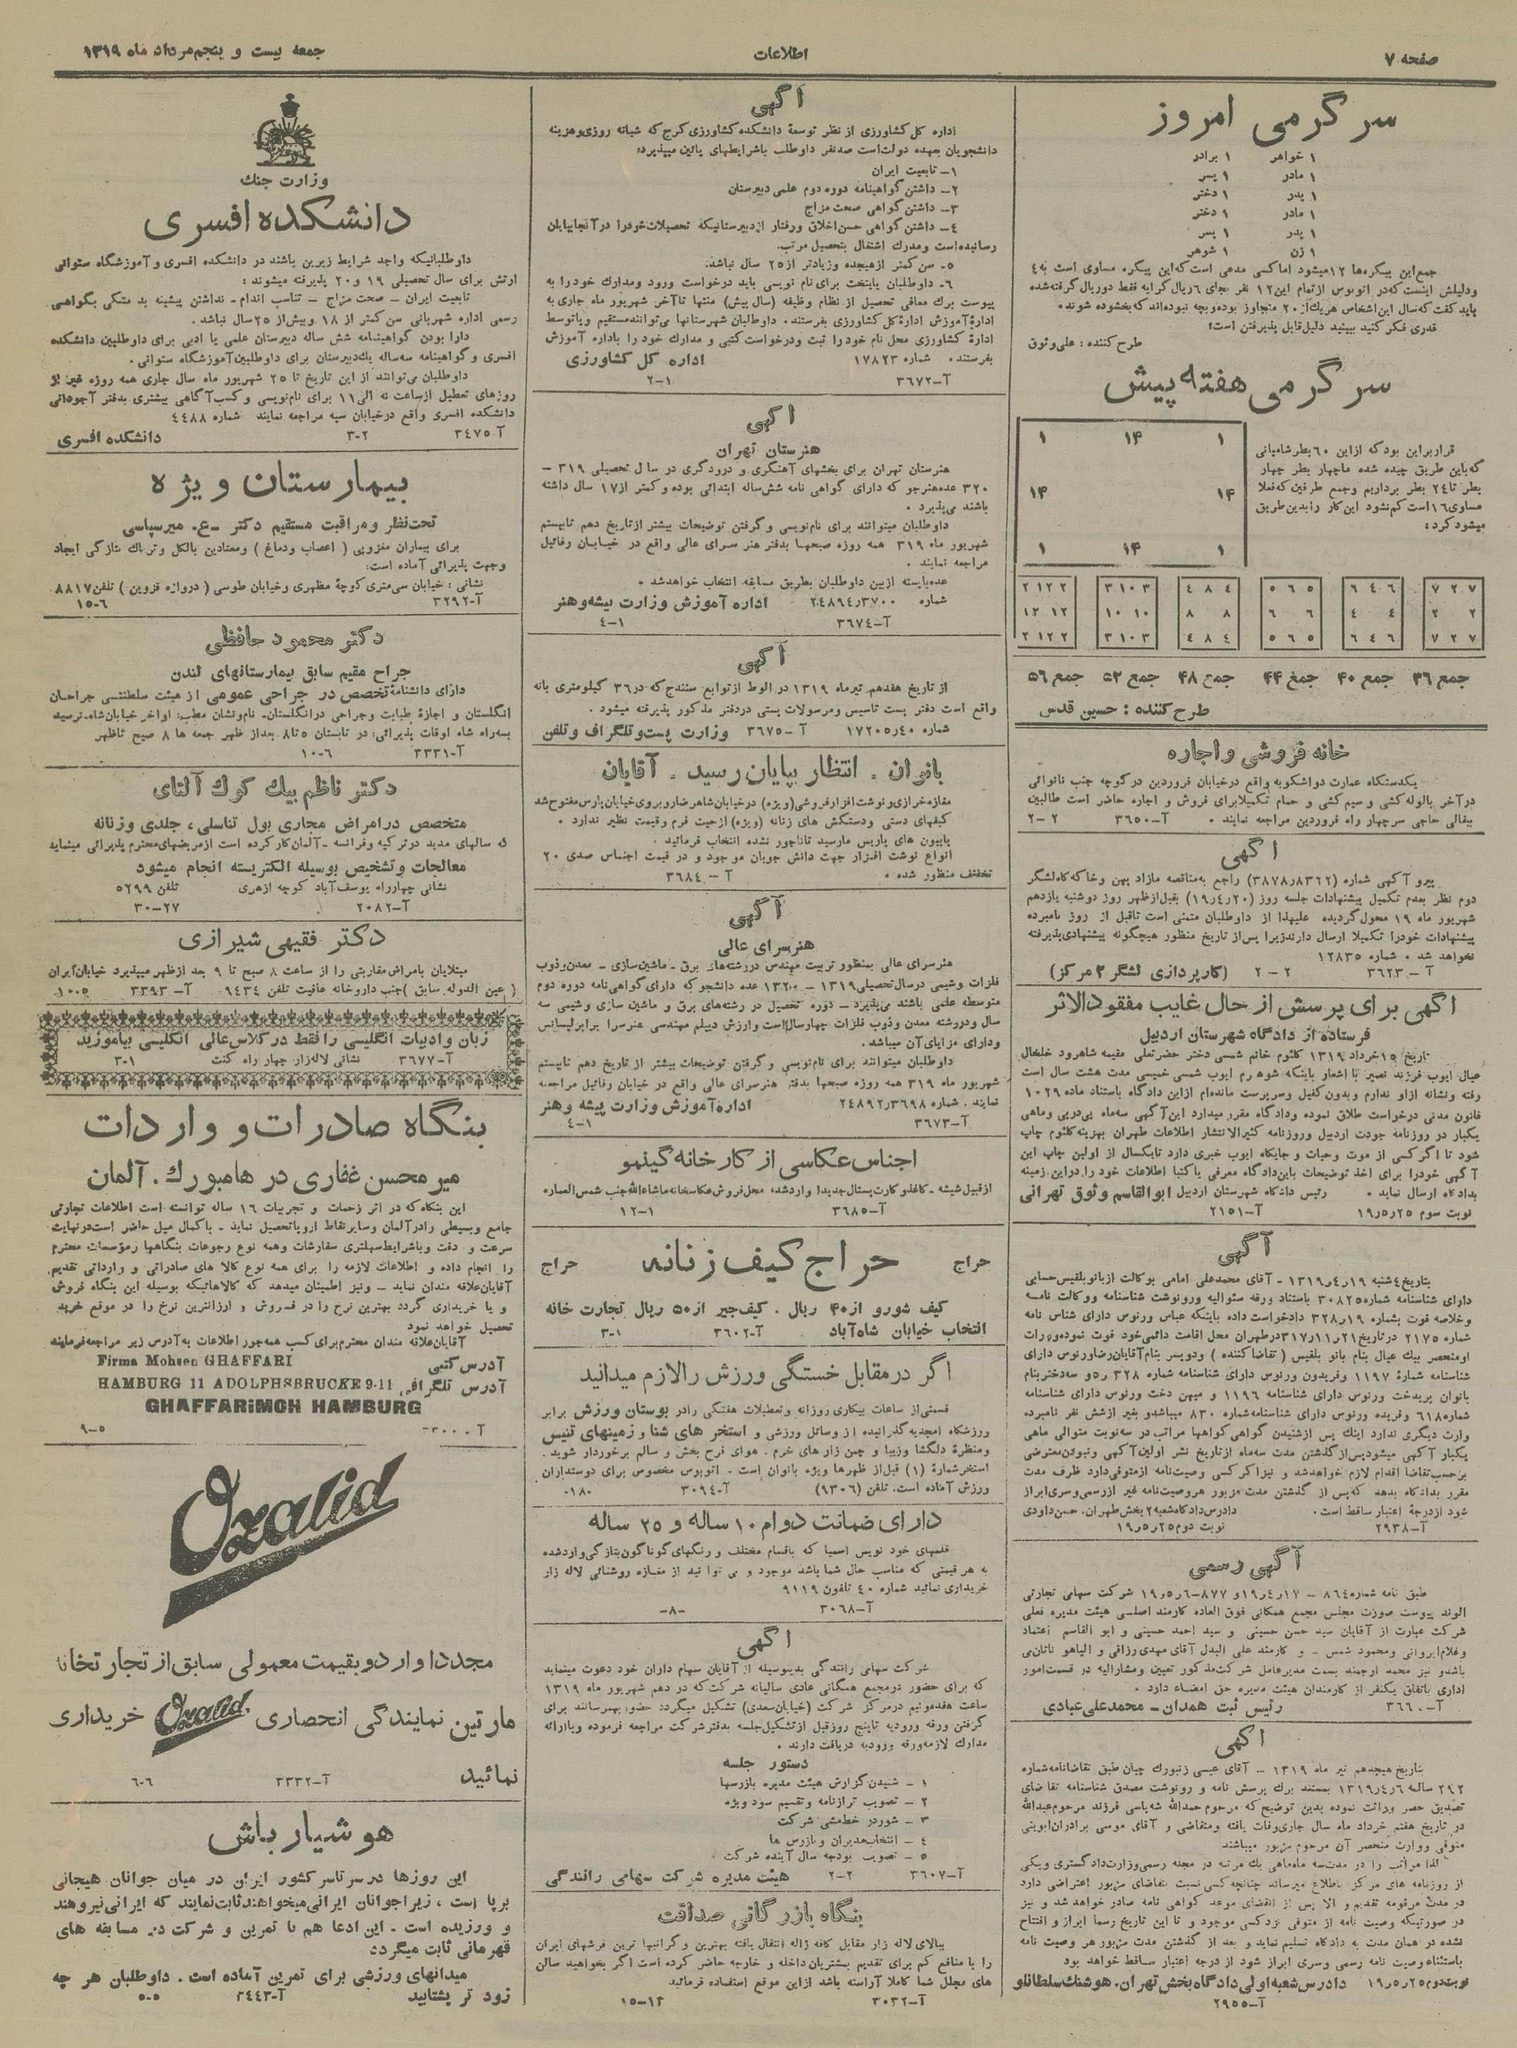 صفحه ۷
اطلاعات
جمعه بیست و پنجم مرداد ماه ۱۳۱۹
سرگرمی امروز
۱ خواهر ۱ برادر
۱ مادر ۱ پسر
۱ پدر ۱ دختر
۱ مادر ۱ دختر
۱ پدر ۱ پسر
۱ زن ۱ شوهر
جمع این پیکره‌ها ۱۲ میشود اما کسی مدعی است که این پیکره مساوی است به ۴
ودلیلش اینست که در اتوبوس از تمام این ۱۲ نفر بجای ۶ ریال کرایه فقط دو ریال گرفته شده
قدری فکر کنید ببینید دلیل قابل پذیرفتن است؟
طرح کننده : علی وثوق
سرگرمی هفته پیش
قرار براین بود که از این ۶۰ بطر شامپانی
که باین طریق چیده شده ما چهار بطر چهار
بطر تا ۲۴ بطر برداریم وجمع طرفین که فعلا
مساوی ۱۶ است کم نشود این کار را بدین طریق
میشود کرد :
۱ ۱۴ ۱
۱۴ ۱۴
۱ ۱۴ ۱
۷ ۲ ۷
۲ ۲
۷ ۲ ۷
۶ ۴ ۶
۴ ۴
۶ ۴ ۶
۵ ۶ ۵
۶ ۶
۵ ۶ ۵
۴ ۸ ۴
۸ ۸
۴ ۸ ۴
۳ ۱۰ ۳
۱۰ ۱۰
۳ ۱۰ ۳
۲ ۱۲ ۲
۱۲ ۱۲
۲ ۱۲ ۲
جمع ۳۶ جمع ۴۰ جمع ۴۴ جمع ۴۸ جمع ۵۲ جمع ۵۶
طرح کننده : حسین قدس
خانه فروشی و اجاره
یکدستگاه عمارت دو اشکوبه واقع در خیابان فروردین در کوچه جنب نانوائی
در آخر با لوله کشی و سیم کشی و حمام تکمیلا برای فروش و اجاره حاضر است طالبین
ببقالی حاجی سرچهار راه فروردین مراجعه نمایند . آ-۳۶۵۰ ۲-۲
آگهی
پیرو آگهی شماره (۳۸۷۸٫۸۳۶۲) راجع به مناقصه مازاد پهن و خاکه کاه لشگر
دوم نظر بعدم تکمیل پیشنهادات جلسه روز (۱۹٫۴٫۲۰) بقبل از ظهر روز دوشنبه یازدهم
شهریور ماه ۱۹ محول گردیده علیهذا از داوطلبان متمنی است تا قبل از روز نامبرده
پیشنهادات خود را تکمیلا ارسال دارند زیرا پس از تاریخ منظور هیچگونه پیشنهادی پذیرفته
نخواهد شد . شماره ۱۲۸۳۵
آ-۳۶۲۳ ۲-۲ (کارپردازی لشگر ۲ مرکز)
آگهی برای پرسش از حال غایب مفقودالاثر
فرستاده از دادگاه شهرستان اردبیل
تاریخ ۱۵ خرداد ۱۳۱۹ کلثوم خانم شمسی دختر حضرتعلی مقیمه شاهرود خلخال
عیال ایوب فرزند نصیر با اشعار باینکه شوهرم ایوب شمسی خمیسی مدت هشت سال است
رفته ونشانه از او ندارم وبدون کفیل وسرپرست مانده‌ام از این دادگاه باستناد ماده ۱۰۲۹
قانون مدنی درخواست طلاق نموده ودادگاه مقرر میدارد این آگهی سه ماه پی درپی وماهی
یکبار در روزنامه جودت اردبیل وروزنامه کثیرالانتشار اطلاعات طهران بهزینه کلثوم چاپ
شود تا اگر کسی از موت وحیات و جایگاه ایوب خبری دارد تا یکسال از اولین چاپ این
آگهی خود را برای اخذ توضیحات باین دادگاه معرفی یا کتبا اطلاعات خود را در این زمینه
بدادگاه ارسال نماید . رئیس دادگاه شهرستان اردبیل ابوالقاسم وثوق تهرانی
نوبت سوم ۱۹٫۵٫۲۵ آ-۲۱۵۱
آگهی
بتاریخ ۴ شنبه ۱۳۱۹٫۴٫۱۹ - آقای محمدعلی امامی بوکالت از بانو بلقیس حسابی
دارای شناسنامه شماره ۳۰۸۲۵ باستناد ورقه سئوالیه ورونوشت شناسنامه ووکالت نامه
شناسنامه شماره ۱۱۹۷ وفریدون ورنوس دارای شناسنامه شماره ۳۲۸
یکبار آگهی میشود پس از گذشتن مدت سه ماه از تاریخ نشر اولین آگهی ونبودن معترضی
برحسب تقاضا اقدام لازم خواهد شد و نیز اگر کسی وصیت نامه از متوفی دارد ظرف مدت
مقرر بدادگاه بدهد که پس از گذشتن مدت مزبور هر وصیت نامه غیر از رسمی وسری ابراز
شود از درجه اعتبار ساقط است . دادرس دادگاه شعبه ۲ بخش طهران. حسن داودی
آ-۲۹۳۸ نوبت دوم ۱۹٫۵٫۲۵
آگهی رسمی
طبق نامه شماره ۸۶۴ - ۱۹٫۴٫۱۷ و ۸۷۷-۱۹٫۵٫۶ شرکت سهامی تجارتی
الوند پیوست صورت مجلس مجمع همگانی فوق العاده کارمند اصلی هیئت مدیره فعلی
شرکت عبارت از آقایان سید حسن حسینی و سید احمد حسینی و ابوالقاسم اعتماد
وغلام ایروانی ومحمود شمس - و کارمند علی البدل آقای مهدی رزاقی و الیاهو ناتان می
باشد و نیز محمد ارجمند بسمت مدیرعامل شرکت مذکور تعیین ومشارالیه در قسمت امور
اداری باتفاق یکنفر از کارمندان هیئت مدیره حق امضاء دارد .
آ-۳۶۶۰ رئیس ثبت همدان - محمدعلی عبادی
آگهی
بتاریخ هیجدهم تیر ماه ۱۳۱۹ - آقای عیسی زنبورک چیان طبق تقاضانامه شماره
۲۹۲ ساله ۱۳۱۹٫۴٫۶ بمستند برگ پرسش نامه و رونوشت مصدق شناسنامه تقاضای
متوفی ووارث منحصر آن مرحوم مزبور میباشند
لذا مراتب را در مدت سه ماه ماهی یک مرتبه در مجله رسمی وزارت دادگستری ویکی
در صورتیکه وصیت نامه از متوفی نزد کسی موجود و تا این تاریخ رسما ابراز و افتتاح
نشده در همان مدت به دادگاه تسلیم نماید و بعد از گذشتن مدت مزبور هر وصیت نامه
باستثناء وصیت نامه رسمی وسری ابراز شود از درجه اعتبار ساقط خواهد بود
نوبت دوم ۱۹٫۵٫۲۵ دادرس شعبه اولی دادگاه بخش تهران. هوشنگ سلطانلو
آ-۲۹۵۵
آگهی
اداره کل کشاورزی از نظر توسعهٔ دانشکده کشاورزی کرج که شبانه روزی وهزینه
دانشجویان بعهده دولت است صد نفر داوطلب با شرایطهای پائین میپذیرد:
۱- تابعیت ایران
۲- داشتن گواهینامه دوره دوم علمی دبیرستان
۳- داشتن گواهی صحت مزاج
۴- داشتن گواهی حسن اخلاق ورفتار از دبیرستانیکه تحصیلات خود را در آنجا بپایان
رسانیده است ومدرک اشتغال بتحصیل مرتب.
۵- سن کمتر از هیجده وزیادتر از ۲۵ سال نباشد.
۶- داوطلبان پایتخت برای نام نویسی باید درخواست ورود ومدارک خود را به
پیوست برگ معافی تحصیل از نظام وظیفه (سال پیش) منتها تا آخر شهریور ماه جاری به
ادارهٔ آموزش ادارهٔ کل کشاورزی بفرستند. داوطلبان شهرستانها می‌توانند مستقیم ویا توسط
ادارهٔ کشاورزی محل نام خود را ثبت ودرخواست کتبی و مدارک خود را باداره آموزش
بفرستند . شماره ۱۷۸۲۳ اداره کل کشاورزی
آ-۳۶۷۲ ۲-۱
آگهی
هنرستان تهران
هنرستان تهران برای بخشهای آهنگری و درودگری در سال تحصیلی ۳۱۹ -
۳۲۰ عده هنرجو که دارای گواهی نامه شش ساله ابتدائی بوده و کمتر از ۱۷ سال داشته
باشند می‌پذیرد .
داوطلبان میتوانند برای نام‌نویسی و گرفتن توضیحات بیشتر از تاریخ دهم تا بیستم
شهریور ماه ۳۱۹ همه روزه صبحها بدفتر هنر سرای عالی واقع در خیابان رفائیل
مراجعه نمایند .
عده بایسته از بین داوطلبان بطریق مسابقه انتخاب خواهد شد .
شماره ۲۴۸۹۴٫۳۷۰۰ اداره آموزش وزارت پیشه وهنر
آ-۳۶۷۴ ۴-۱
آگهی
از تاریخ هفدهم تیر ماه ۱۳۱۹ در الوط از توابع سنندج که در ۳۶ کیلومتری بانه
واقع است دفتر پست تاسیس ومرسولات پستی در دفتر مذکور پذیرفته میشود .
شماره ۱۷۲۰۵٫۴۰ آ-۳۶۷۵ وزارت پست و تلگراف و تلفن
بانوان . انتظار بپایان رسید . آقایان
مغازه خرازی و نوشت افزار فروشی (ویژه) در خیابان شاهرضا روبروی خیابان پارس مفتوح شد
کیفهای دستی ودستکش های زنانه (ویژه) از حیث فرم وقیمت نظیر ندارد .
پاپیون های پاریس مارسید تا تاجور نشده انتخاب فرمائید .
انواع نوشت افزار جهت دانش جویان موجود و در قیمت اجناس صدی ۲۰
تخفیف منظور شده . آ-۳۶۸۴
آگهی
هنرسرای عالی
هنرسرای عالی بمنظور تربیت مهندس در رشته‌های برق - ماشین سازی - معدن وذوب
فلزات وشیمی در سال تحصیلی ۱۳۱۹ - ۱۳۲۰ عده دانشجو که دارای گواهی نامه دوره دوم
متوسطه علمی باشند می‌پذیرد - دوره تحصیل در رشته‌های برق و ماشین سازی وشیمی سه
سال ودر رشته معدن وذوب فلزات چهار سال است وارزش دیپلم مهندسی هنرسرا برابر لیسانس
ودارای مزایای آن میباشد.
داوطلبان میتوانند برای نام‌نویسی و گرفتن توضیحات بیشتر از تاریخ دهم تا بیستم
شهریور ماه ۳۱۹ همه روزه صبحها بدفتر هنرسرای عالی واقع در خیابان رفائیل مراجعه
نمایند. شماره ۲۴۸۹۲٫۳۶۹۸ اداره آموزش وزارت پیشه وهنر
آ-۳۶۷۳ ۴-۱
اجناس عکاسی از کارخانه گینمو
از قبیل شیشه - کاغذ و کارت پستال جدیدا وارد شده محل فروش عکاسخانه ماشاءالله جنب شمس العماره
آ-۳۶۸۵ ۱۲-۱
حراج حراج کیف زنانه حراج
کیف شورو از ۴۰ ریال . کیف جیر از ۵۰ ریال تجارت خانه
انتخاب خیابان شاه‌آباد آ-۳۶۰۲ ۳-۱
اگر در مقابل خستگی ورزش را لازم میدانید
قسمتی از ساعات بیکاری روزانه وتعطیلات هفتگی را در بوستان ورزش برابر
ورزشگاه امجدیه گذرانیده از وسائل ورزشی و استخر های شنا و زمینهای تنیس
ومنظرهٔ دلگشا وزیبا و چمن زار های خرم . هوای فرح بخش و سالم برخوردار شوید.
استخر شمارهٔ (۱) قبل از ظهرها ویژه بانوان است - اتوبوس مخصوص برای دوستداران
ورزش آماده است. تلفن (۹۳۰۶) آ-۳۰۹۴ ۱۸۰-
دارای ضمانت دوام ۱۰ ساله و ۲۵ ساله
قلمهای خود نویس اسمیا که باقسام مختلف و رنگهای گوناگون بتازگی وارد شده
به هر قیمتی که مناسب حال شما باشد موجود و می توانید از مغازه روشنائی لاله زار
خریداری نمائید شماره ۴۰ تلفون ۹۱۱۹
آ-۳۰۶۸ -۸-
آگهی
شرکت سهامی رانندگی بدینوسیله از آقایان سهام داران خود دعوت مینماید
که برای حضور در مجمع همگانی عادی سالیانه شرکت که در دهم شهریور ماه ۱۳۱۹
ساعت هفده ونیم در مرکز شرکت (خیابان سعدی) تشکیل میگردد حضور بهمرسانند برای
گرفتن ورقه ورودیه تا پنج روز قبل از تشکیل جلسه بدفتر شرکت مراجعه فرموده وبا ارائه
مدارک لازمه ورقه ورودیه دریافت دارند .
دستور جلسه
۱ - شنیدن گزارش هیئت مدیره بازرسها
۲ - تصویب ترازنامه وتقسیم سود ویژه
۳ - شور در خط مشی شرکت
۴ - انتخاب مدیران و بازرس ها
۵ - تصویب بودجه سال آینده شرکت
آ-۳۶۰۷ ۲-۲ هیئت مدیره شرکت سهامی رانندگی
بنگاه بازرگانی صداقت
ببالای لاله زار مقابل کافه ژاله انتقال یافته بهترین و گرانبها ترین فرشهای ایران
را با منافع کم برای تقدیم بمشتریان داخله و خارجه حاضر کرده است اگر بخواهید سالن
های مجلل شما کاملا آراسته باشد از این موقع استفاده فرمائید
آ-۳۰۳۲ ۱۵-۱۴
وزارت جنگ
دانشکده افسری
داوطلبانیکه واجد شرایط زیرین باشند در دانشکده افسری و آموزشگاه ستوانی
ارتش برای سال تحصیلی ۱۹ و ۲۰ پذیرفته میشوند :
تابعیت ایران - صحت مزاج - تناسب اندام - نداشتن پیشینه بد متکی بگواهی
رسمی اداره شهربانی سن کمتر از ۱۸ وبیش از ۲۵ سال نباشد .
دارا بودن گواهینامه شش ساله دبیرستان علمی یا ادبی برای داوطلبین دانشکده
افسری و گواهینامه سه ساله یک دبیرستان برای داوطلبین آموزشگاه ستوانی .
داوطلبان می‌توانند از این تاریخ تا ۲۵ شهریور ماه سال جاری همه روزه غیر از
روزهای تعطیل از ساعت نه الی ۱۱ برای نام‌نویسی و کسب آگاهی بیشتری بدفتر آجودانی
دانشکده افسری واقع در خیابان سپه مراجعه نمایند شماره ۴۴۸۸
آ-۳۴۷۵ ۳-۲ دانشکده افسری
بیمارستان ویژه
تحت نظر و مراقبت مستقیم دکتر -ع. میرسپاسی
برای بیماران مغزوپی ( اعصاب ودماغ ) ومعتادین بالکل وتریاک بتازگی ایجاد
وجهت پذیرائی آماده است:
نشانی : خیابان سی متری کوچهٔ مظهری وخیابان طوسی ( دروازه قزوین ) تلفن ۸۸۱۷
آ-۳۲۹۲ ۱۵-۶
دکتر محمود حافظی
جراح مقیم سابق بیمارستانهای لندن
دارای دانشنامهٔ تخصص در جراحی عمومی از هیئت سلطنتی جراحان
انگلستان و اجازهٔ طبابت وجراحی در انگلستان. نام ونشان مطب: اواخر خیابان شاه. نرسید
بسه راه شاه اوقات پذیرائی: در تابستان ۵ تا ۸ بعد از ظهر جمعه ها ۸ صبح تا ظهر
آ-۳۳۳۱ ۱۰-۶
دکتر ناظم بیک کوک آلتای
متخصص در امراض مجاری بول تناسلی، جلدی وزنانه
که سالهای مدید در ترکیه وفرانسه - آلمان کار کرده است از مریضهای محترم پذیرائی مینماید
معالجات و تشخیص بوسیله الکتریسته انجام میشود
نشانی چهارراه یوسف‌آباد کوچه ازهری تلفن ۵۲۹۹
آ-۲۰۸۲ ۳۰-۲۷
دکتر فقیهی شیرازی
مبتلایان بامراض مقاربتی را از ساعت ۸ صبح تا ۹ بعد از ظهر میپذیرد خیابان ایران
( عین الدوله سابق ) جنب داروخانه عاقیت تلفن ۹۴۳۴ آ-۳۳۹۳ ۱۰-۵
زبان و ادبیات انگلیسی را فقط در کلاس عالی انگلیسی بیاموزید
آ-۳۶۷۷ نشانی لاله‌زار چهار راه کنت ۳-۱
بنگاه صادرات و واردات
میر محسن غفاری در هامبورک . آلمان
این بنگاه که در اثر زحمات و تجربیات ۱۶ ساله توانسته است اطلاعات تجارتی
جامع وبسیطی را در آلمان وسایر نقاط اروپا تحصیل نماید - با کمال میل حاضر است در نهایت
سرعت و دقت وباشرایط سهلتری سفارشات وهمه نوع رجوعات بنگاهها ومؤسسات محترم
را انجام داده و اطلاعات لازمه را برای همه نوع کالا های صادراتی و وارداتی تقدیم
آقایان علاقه مندان نماید - ونیز اطمینان میدهد که کالاهائیکه بوسیله این بنگاه فروش
و یا خریداری گردد بهترین نرخ را در فروش و ارزانترین نرخ را در موقع خرید
تحصیل خواهد نمود
آقایان علاقه مندان محترم برای کسب همه‌جور اطلاعات به آدرس زیر مراجعه فرمایند
آدرس کتبی Firma Mohsen GHAFFARI
HAMBURG 11 ADOLPHSBRUCKE 9-11
آدرس تلگرافی
GHAFFARiMOH HAMBURG
۹-۵
Ozalid
مجددا وارد و بقیمت معمولی سابق از تجارتخانه
مارتین نمایندگی انحصاری Ozalid خریداری
نمائید آ-۳۳۳۲ ۶-۶
هوشیار باش
این روزها در سرتاسر کشور ایران در میان جوانان هیجانی
برپا است ، زیرا جوانان ایرانی میخواهند ثابت نمایند که ایرانی نیرومند
و ورزیده است - این ادعا هم با تمرین و شرکت در مسابقه های
قهرمانی ثابت میگردد
میدانهای ورزشی برای تمرین آماده است . داوطلبان هر چه
زود تر بشتابید آ-۳۴۴۳ ۵-۵